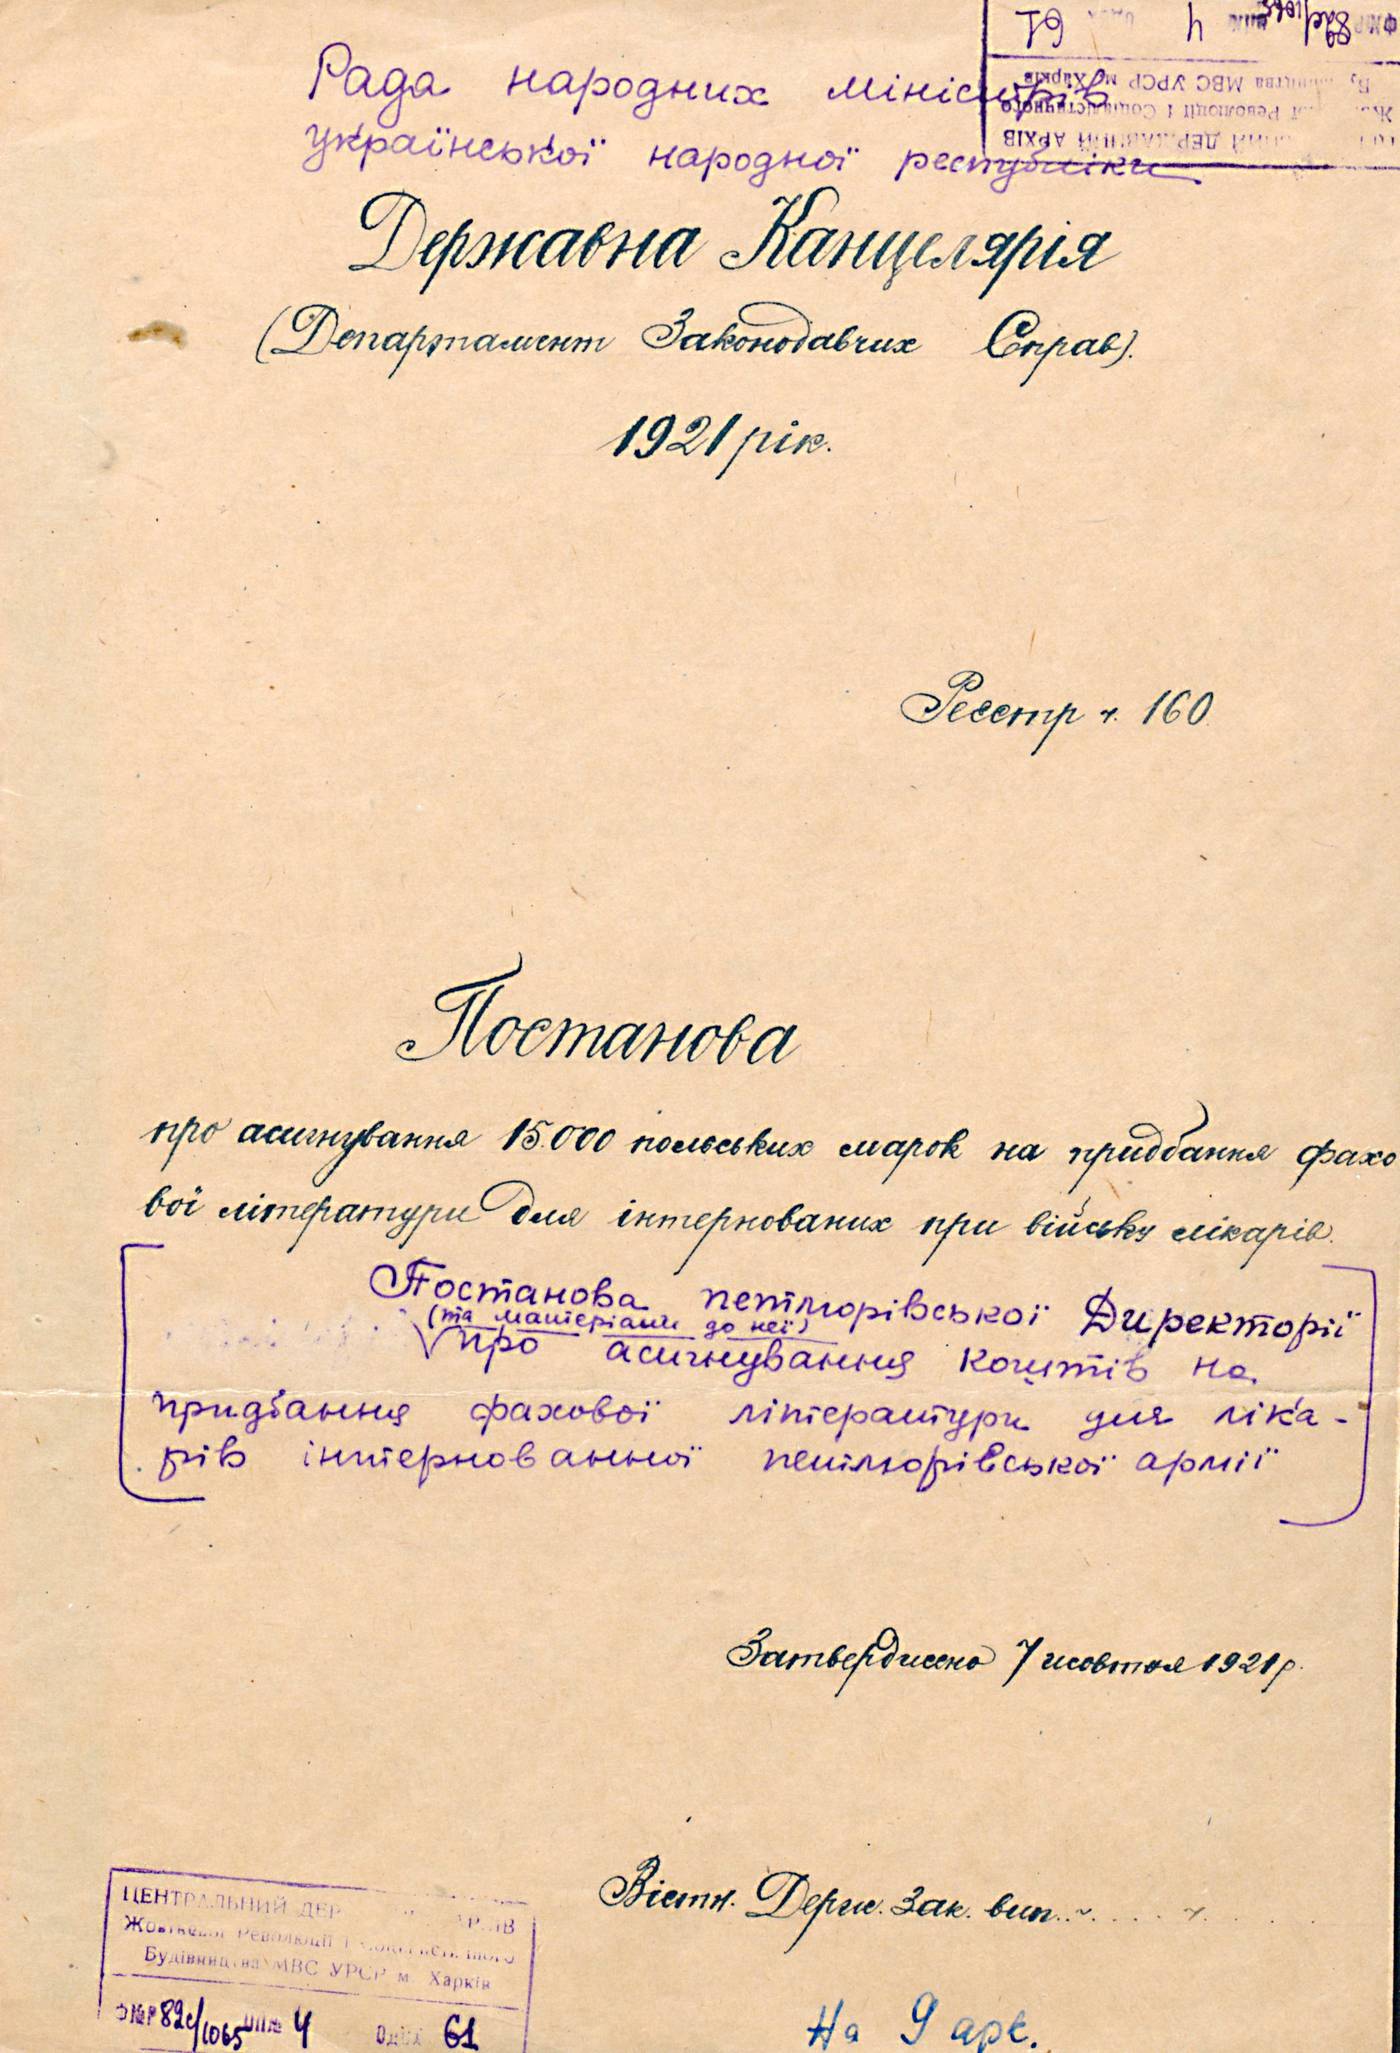 Рада народних міністрів
української народної республіки
Державна Канцелярія
(Департамент Законодавчих Справ).
1921 рік.
Реєстр ч. 160
Постанова
про асигнування 15.000 польських марок на придбання фахо
вої літератури для інтернованих при війську лікарів.
Постанова петлюрівської Директорії
(та матеріали до неї)
про асигнування коштів на
придбання фахової літератури для ліка-
рів інтернованної петлюрівської армії
Затверджено 7 жовтня 1921 р.
Вістн. Держ. Зак. вип. ч.
ЦЕНТРАЛЬНИЙ ДЕР АРХІВ
Жовтневої Революції і Соціалістичного
Будівництва МВС УРСР м Харків
Ф №Р 82с/1065 ОП № 4 Од. 61
На 9 арк.